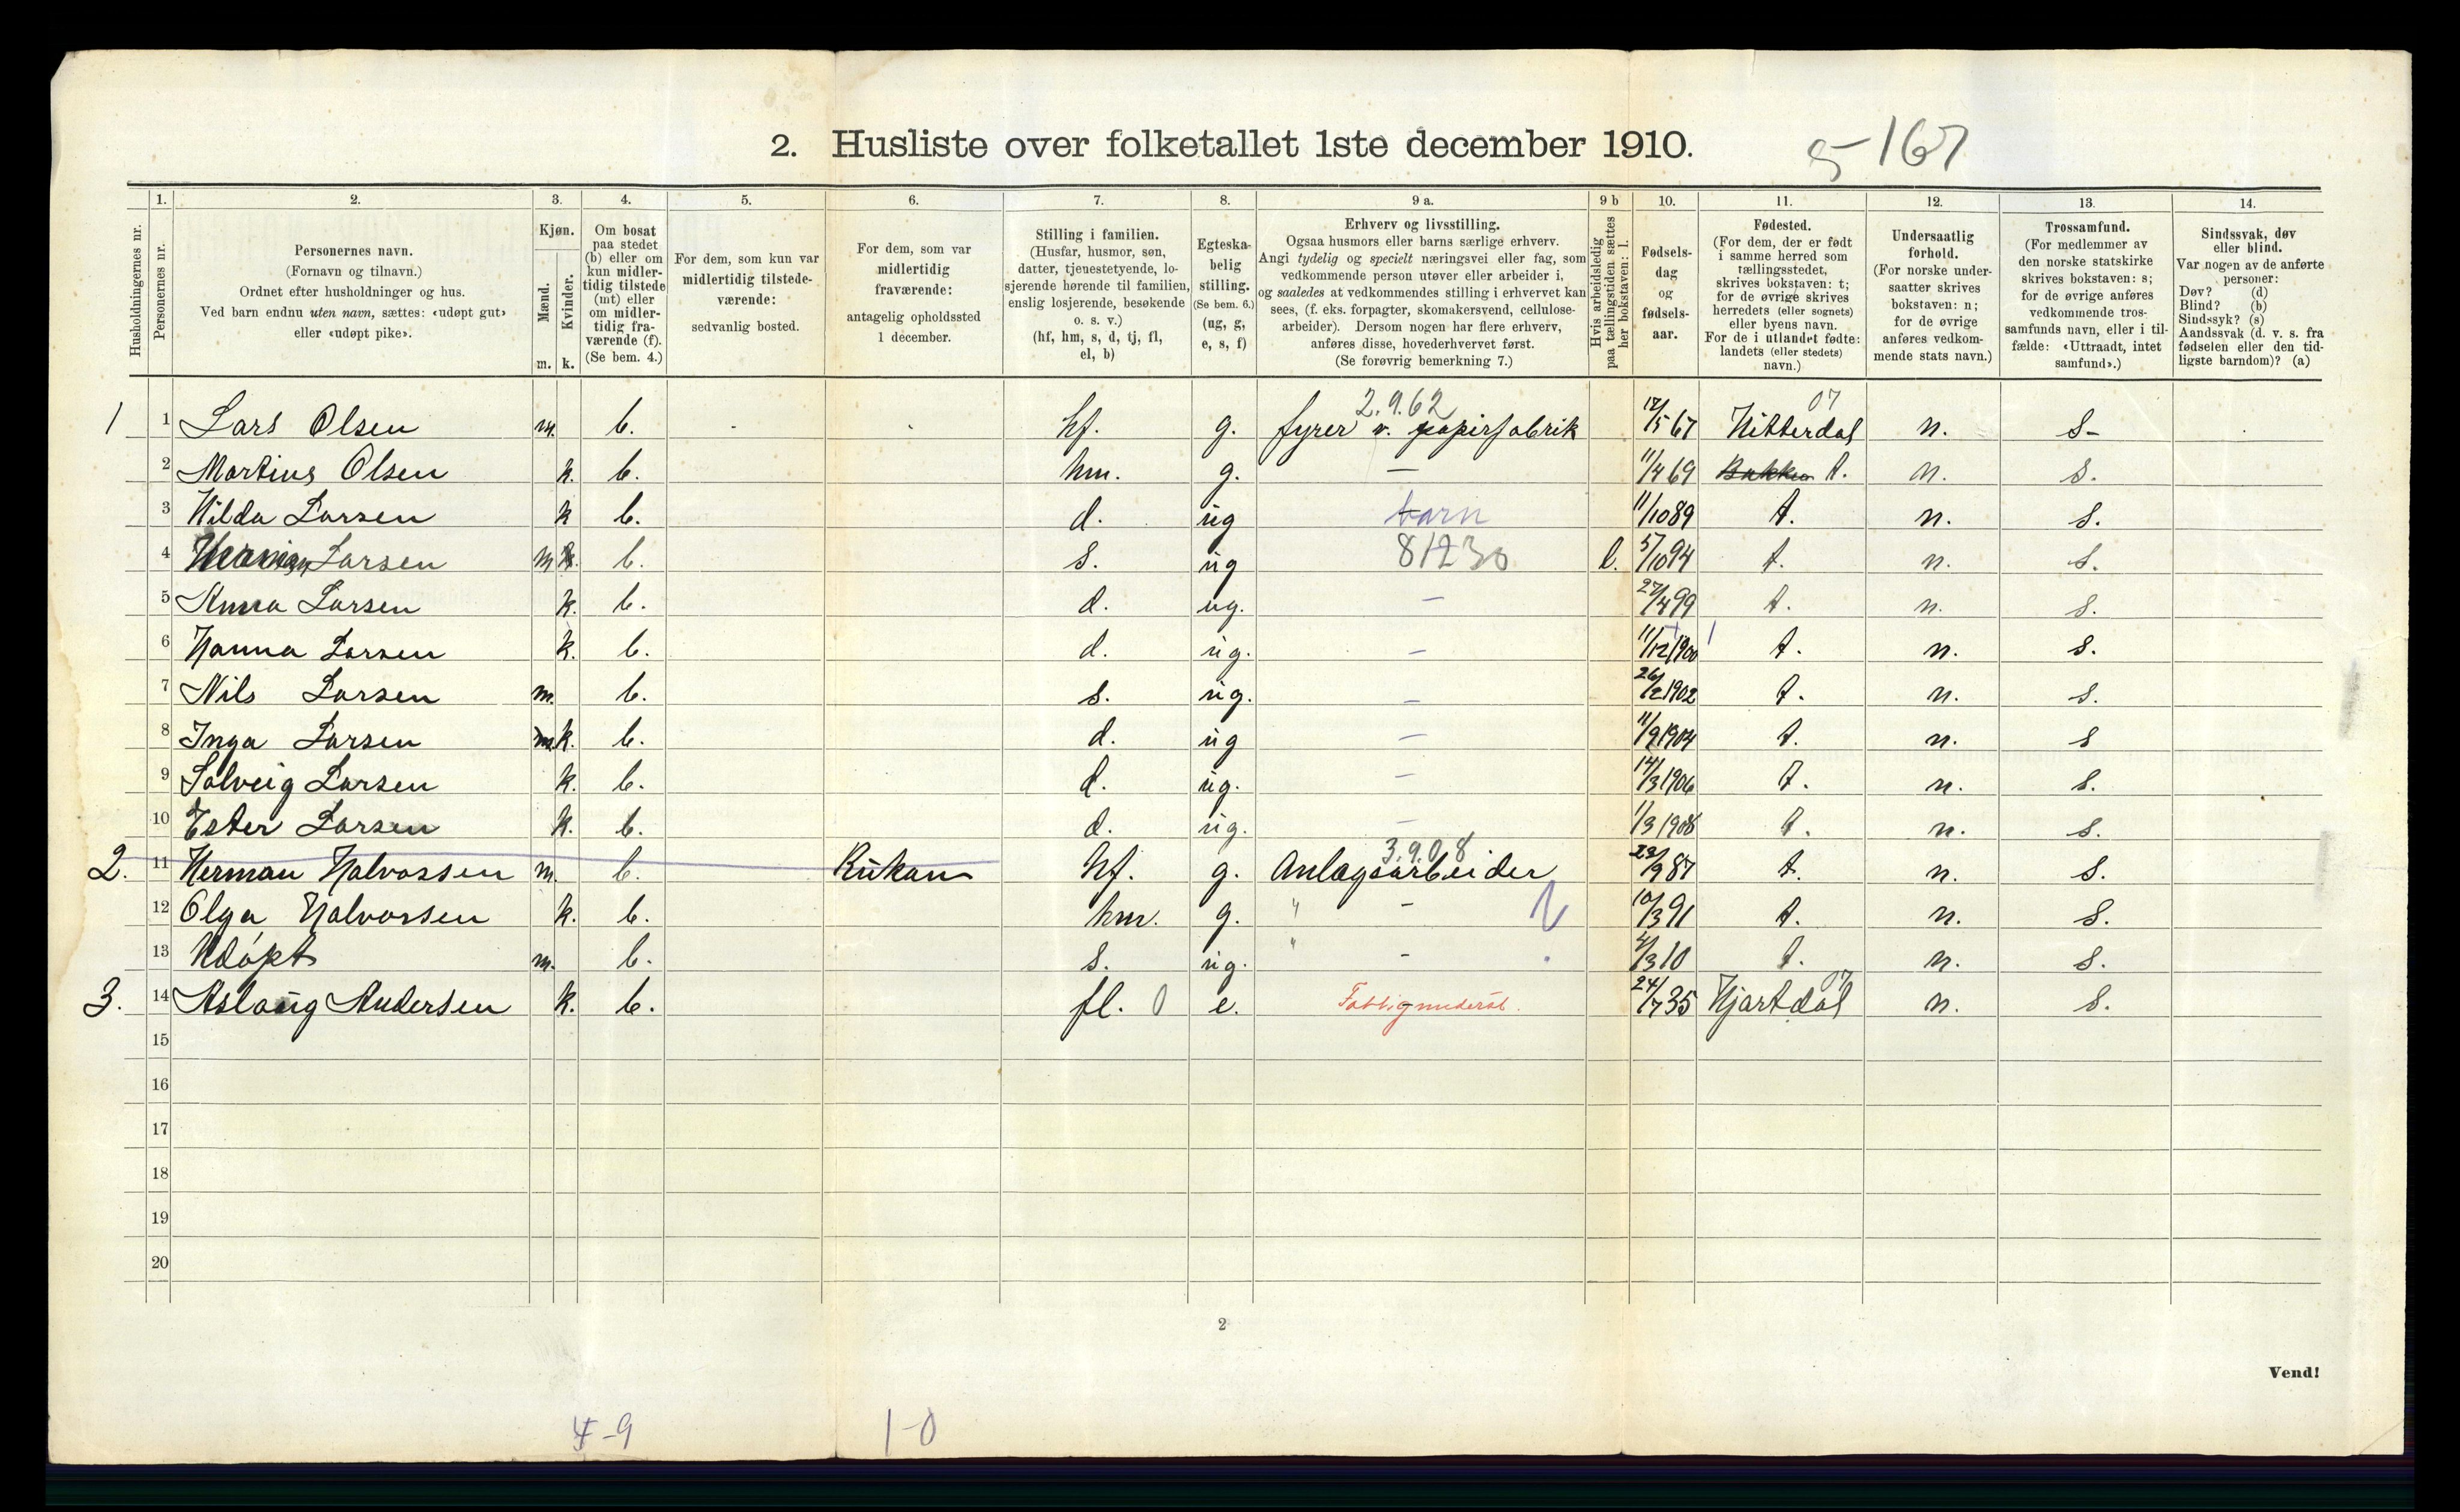 2. Husliste over folketallet 1ste december 1910.
5-167
Husholdningernes nr.
1.
Personernes nr.
2.
Personernes navn.
(Fornavn og tilnavn.)
Ordnet efter husholdninger og hus.
Ved barn endnu uten navn, sættes: «udøpt gut»
eller «udøpt pike».
3.
Kjøn.
Mænd.
Kvinder.
m. k.
4.
Om bosat
paa stedet
(b) eller om
kun midler-
tidig tilstede
(mt) eller
om midler-
tidig fra-
værende (f).
(Se bem. 4.)
5.
For dem, som kun var
midlertidig tilstede-
værende:
sedvanlig bosted.
6.
For dem, som var
midlertidig
fraværende:
antagelig opholdssted
1 december.
7.
Stilling i familien.
(Husfar, husmor, søn,
datter, tjenestetyende, lo-
sjerende hørende til familien,
enslig losjerende, besøkende
o. s. v.)
(hf, hm, s, d, tj, fl,
el, b)
8.
Egteska-
belig
stilling.
(Se bem. 6.)
(ug, g,
e, s, f)
9 a.
Erhverv og livsstilling.
Ogsaa husmors eller barns særlige erhverv.
Angi tydelig og specielt næringsvei eller fag, som
vedkommende person utøver eller arbeider i,
og saaledes at vedkommendes stilling i erhvervet kan
sees, (f. eks. forpagter, skomakersvend, cellulose-
arbeider). Dersom nogen har flere erhverv,
anføres disse, hovederhvervet først.
(Se forøvrig bemerkning 7.)
9 b
Hvis arbeidsledig
paa tællingstiden sættes
her bokstaven: l.
10.
Fødsels-
dag
og
fødsels-
aar.
11.
Fødested.
(For dem, der er født
i samme herred som
tællingsstedet,
skrives bokstaven: t;
for de øvrige skrives
herredets (eller sognets)
eller byens navn.
For de i utlandet fødte:
landets (eller stedets)
navn.)
12.
Undersaatlig
forhold.
(For norske under-
saatter skrives
bokstaven: n;
for de øvrige
anføres vedkom-
mende stats navn.)
13.
Trossamfund.
(For medlemmer av
den norske statskirke
skrives bokstaven: s;
for de øvrige anføres
vedkommende tros-
samfunds navn, eller i til-
fælde: «Uttraadt, intet
samfund».)
14.
Sindssvak, døv
eller blind.
Var nogen av de anførte
personer:
Døv? (d)
Blind? (b)
Sindssyk? (s)
Aandssvak (d. v. s. fra
fødselen eller den tid-
ligste barndom)? (a)
2.9.62 07
1 1 Lars Olsen m. b. - hf. g. fyrer v. papirfabrik 12/5 67 Hitterdal n. s-
2 Martius Olsen k. b. hm. g. — 11/4 69 Bakken t. n. s.
3 Hilda Larsen k b. d. ug barn 11/10 89 t. n. s.
4 Larsen m k. b. s. ug 81230 l. 5/10 94 t. n. s.
5 Anna Larsen k. b. d. ug. — 27/4 99 t. n. s.
6 Hanna Larsen k. b. d. ug. — 11/12 1900 t. n. s.
7 Nils Larsen m. b. s. ug. — 26/2 1902 t. n. s.
8 Inga Larsen m. k. b. d. ug — 11/9 1904 t. n. s
9 Solveig Larsen k. b. d. ug. — 14/3 1906 t. n. s.
10 Ester Larsen k. b. d. ug. — 1/3 1908 t. n. s.
3.9.08
2. 11 Herman Halvorsen m. b. Rukan hf. g. Anlægsarbeider 23/9 87 t. n. s.
12 Olga Halvorsen k. b. hm. g. " - 10/3 91 t. n. s.
13 Udøpt m. b. s. ug. " - 4/3 10 t. n. s.
3. 14 Aslaug Andersen k. b. fl. 0 e. Fattigunderst. 24/7 35 Hjartdal 07 n. s.
15
16
17
18
19
20
2
Vend!
4-9 1-0